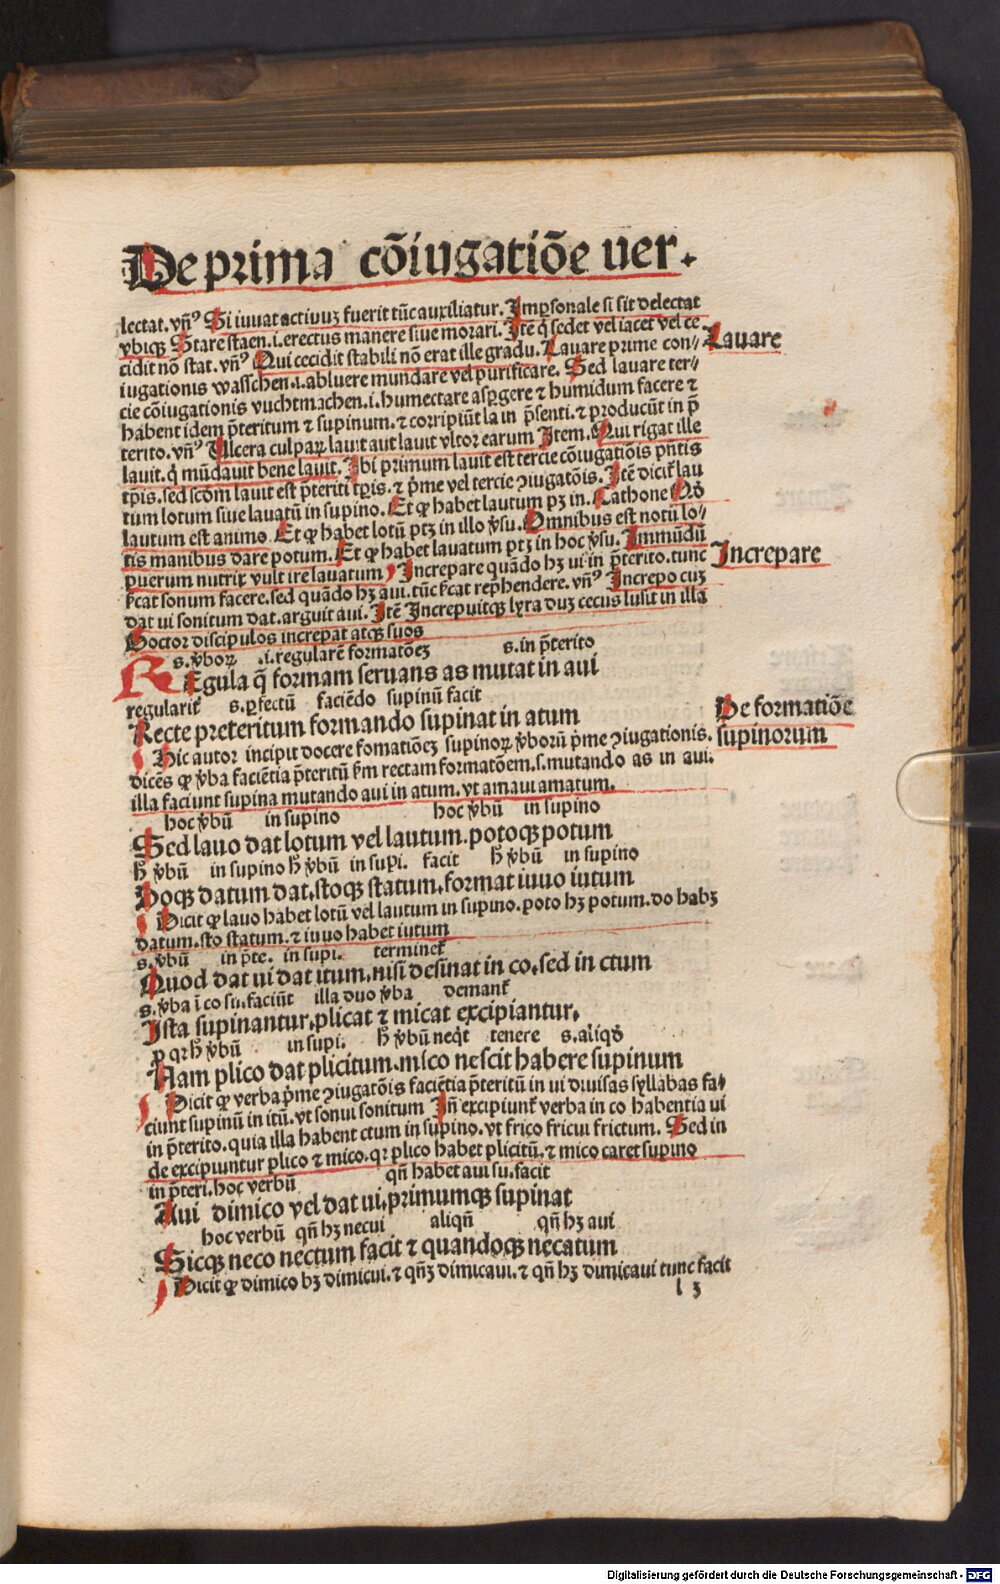 De prima cōiugatiōe ver.
lectat. vñꝰ Si iuuat actiuuȝ fuerit tūc auxiliatur. Imꝑsonale si sit delectat
vbiqꝫ Stare staen .i. erectus manere siue morari. Itē q̇ sedet vel iacet vel ce
cidit nō stat. vñꝰ Qui cecidit stabili nō erat ille gradu. Lauare prime con⸗
Lauare
iugationis wasschen .i. abluere mundare vel purificare. Sed lauare ter⸗
cie cōiugationis vuchtmachen .i. humectare asꝑgere ⁊ humidum facere ⁊
habent idem p̄teritum ⁊ supinum. ⁊ corripiūt la in p̄senti. ⁊ producūt in p̄
terito. vñꝰ Ulcera culpaꝝ lauit aut lauit vltor earum Item. Qui rigat ille
lauit. q̇ mūdauit bene lauit. Ibi primum lauit est tercie cōiugatiōis p̄ntis
tp̄is. sed scd̄m lauit est p̄teriti tp̄is. ⁊ p̄me vel tercie ꝯiugatōis. Itē dicit᷑ lau
tum lotum siue lauatū in supino. Et ꝙ habet lautum pȝ in. Cathone Qd̄
lautum est animo. Et ꝙ habet lotū ptȝ in illo v̄su. Omnibus est notū lo⸗
tis manibus dare potum. Et ꝙ habet lauatum ptȝ in hoc v̄su. Immūdū
puerum nutrix vult ire lauatum Increpare quādo hȝ ui in p̄terito. tunc
Increpare
ẜcat sonum facere. sed quādo hȝ aui. tūc ẜcat rep̄hendere. vñꝰ Increpo cuȝ
dat ui sonitum dat. arguit aui. Itē Increpuitqꝫ lyra duȝ cecus lusit in illa
Doctor discipulos increpat atqꝫ suos
s. v̄boꝝ .i. regularē formatōeȝ s. in p̄terito
REgula q̄ formam seruans as mutat in aui
regularit᷑ s. ꝑfectū faciēdo supinū facit
Recte preteritum formando supinat in atum
De formatiōe
supinorum
Hic autor incipit docere fomatiōeȝ supinoꝝ v̄borū p̄me ꝯiugationis.
dicēs ꝙ v̄ba faciētia p̄teritū ẜm rectam formatōem. s. mutando as in aui.
illa faciunt supina mutando aui in atum. vt amaui amatum.
hoc v̄bū in supino hoc v̄bū in supino
Sed lauo dat lotum vel lautum. potoqꝫ potum
h̄ v̄bū in supino h̄ v̄bū in supi. facit h̄ v̄bū in supino
Doqꝫ datum dat, stoqꝫ statum, format iuuo iutum
Dicit ꝙ lauo habet lotū vel lautum in supino. poto hȝ potum. do habȝ
datum. sto statum. ⁊ iuuo habet iutum
s. v̄bū in p̄te. in supi. terminet᷑
Quod dat ui dat itum, nisi desinat in co, sed in ctum
s. v̄ba ī co su. faciūt illa duo v̄ba demant᷑
Ista supinantur, plicat ⁊ micat excipiantur.
ꝑ qꝛ h̄ v̄bū in supi. h̄ v̄bū neq̇t tenere s. aliqd̄
Nam plico dat plicitum. mico nescit habere supinum
Dicit ꝙ verba p̄me ꝯiugatōis faciētia p̄teritū in ui diuisas syllabas fa⸗
ciunt supinū in itū. vt sonui sonitum Iñ excipiunt᷑ verba in co habentia ui
in p̄terito. quia illa habent ctum in supino. vt frico fricui frictum. Sed in
de excipiuntur plico ⁊ mico. qꝛ plico habet plicitū. ⁊ mico caret supino
in p̄teri. hoc verbū qn̄ habet aui su. facit
Aui dimico vel dat ui, primumqꝫ supinat
hoc verbū qn̄ hȝ necui aliqn̄ qn̄ hȝ aui
Sicqꝫ neco nectum facit ⁊ quandoqꝫ necatum
Dicit ꝙ dimico hȝ dimicui. ⁊ qn̄ȝ dimicaui. ⁊ qn̄ hȝ dimicaui tunc facit
l 3
Digitalisierung gefördert durch die Deutsche Forschungsgemeinschaft - DFG